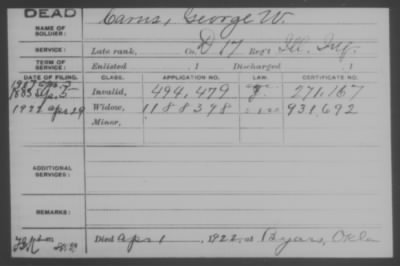 DEAD
NAME OF SOLDIER: Carns, George W.
SERVICE: Late rank, Co. D 17 Reg't Ill. Inf.
TERM OF SERVICE: Enlisted , 1 Discharged , 1
DATE OF FILING. CLASS. APPLICATION NO. LAW. CERTIFICATE NO.
Invalid, 494,479 271,167
1922 Apr 29 Widow, 1188398 931,692
Minor,
ADDITIONAL SERVICES:
REMARKS:
Died Apr 1, 1922, at Byars, Okla